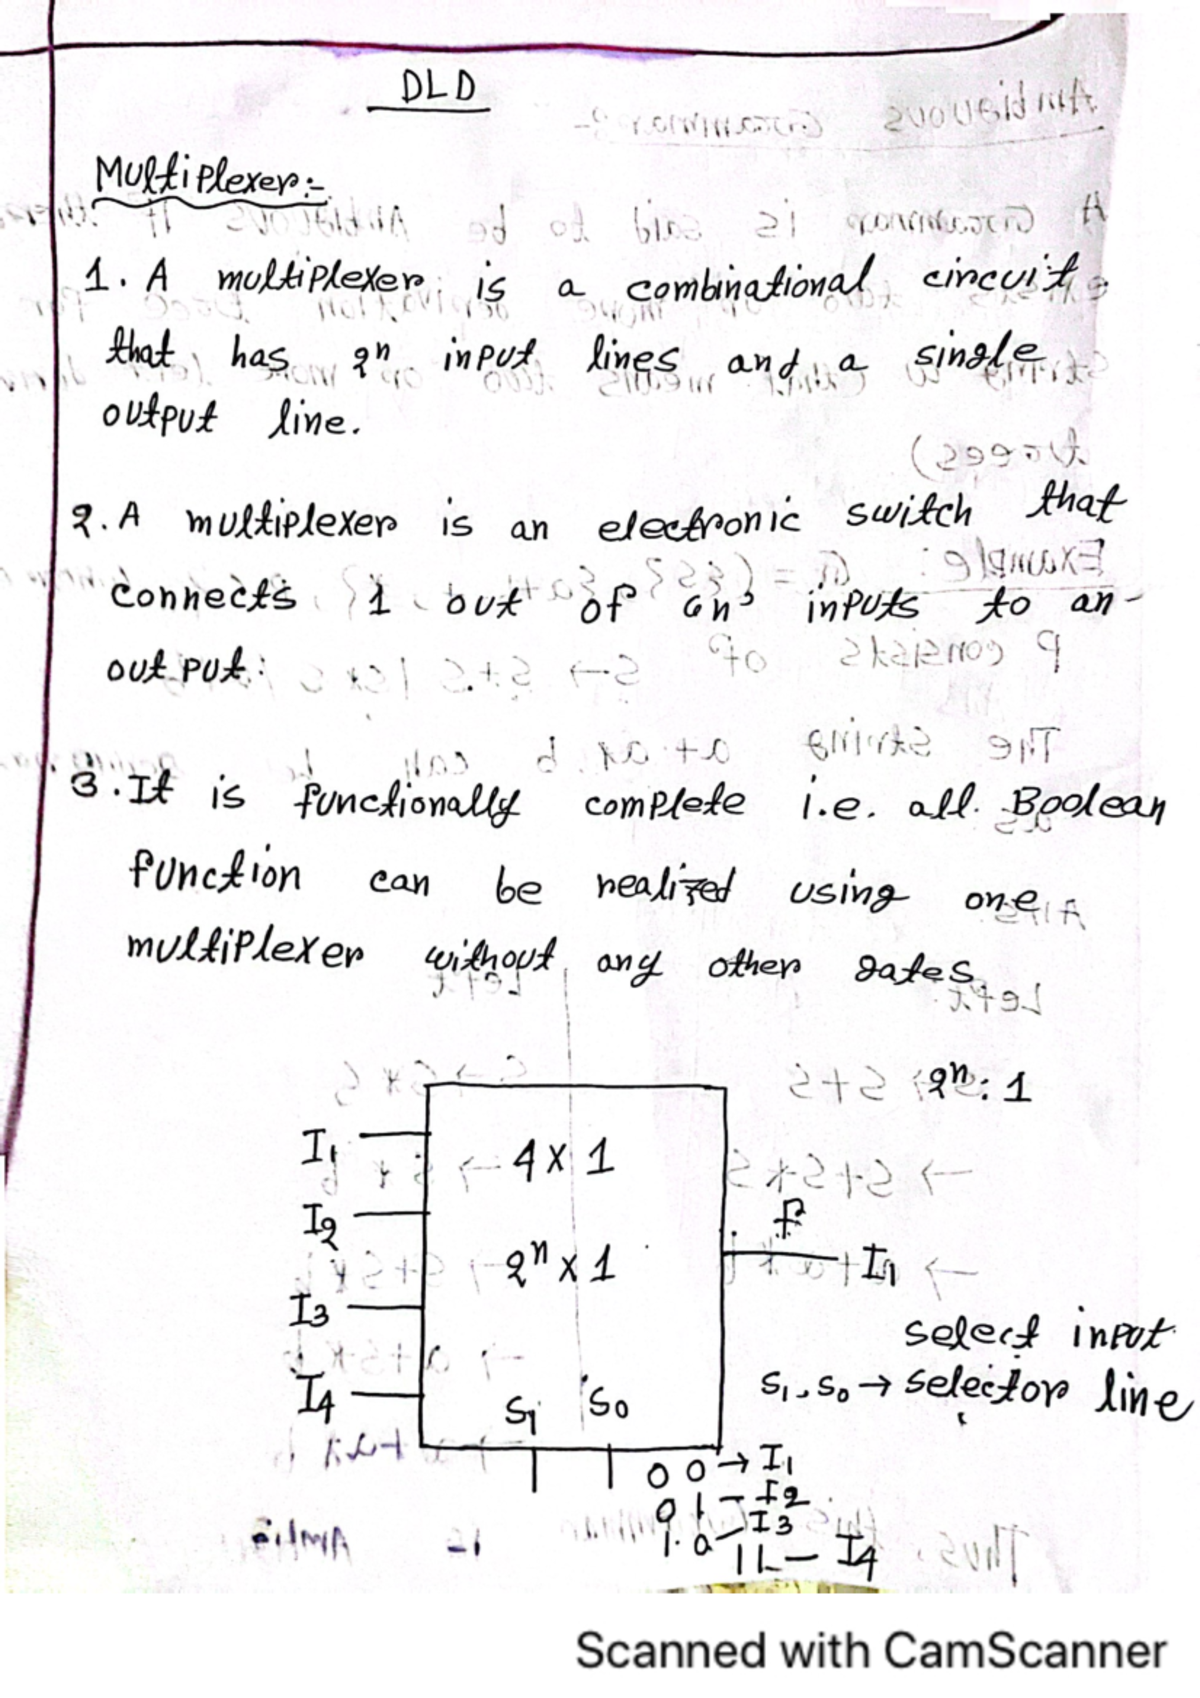 DLD
Multiplexer:-
1. A multiplexer is a combinational circuit
that has 2ⁿ input lines and a single
output line.
2. A multiplexer is an electronic switch that
connects 1 out of n inputs to an
out put.
3. It is functionally complete i.e. all Boolean
function can be realized using one
multiplexer without any other gates
2ⁿ: 1
I₁
4 x 1
I₂
f
2ⁿ x 1
I₁
I₃
select input
I₄
S₁ S₀
S₁, S₀ → selector line
0 0 → I₁
0 1 – I₂
1 0 – I₃
1 1 – I₄
Scanned with CamScanner